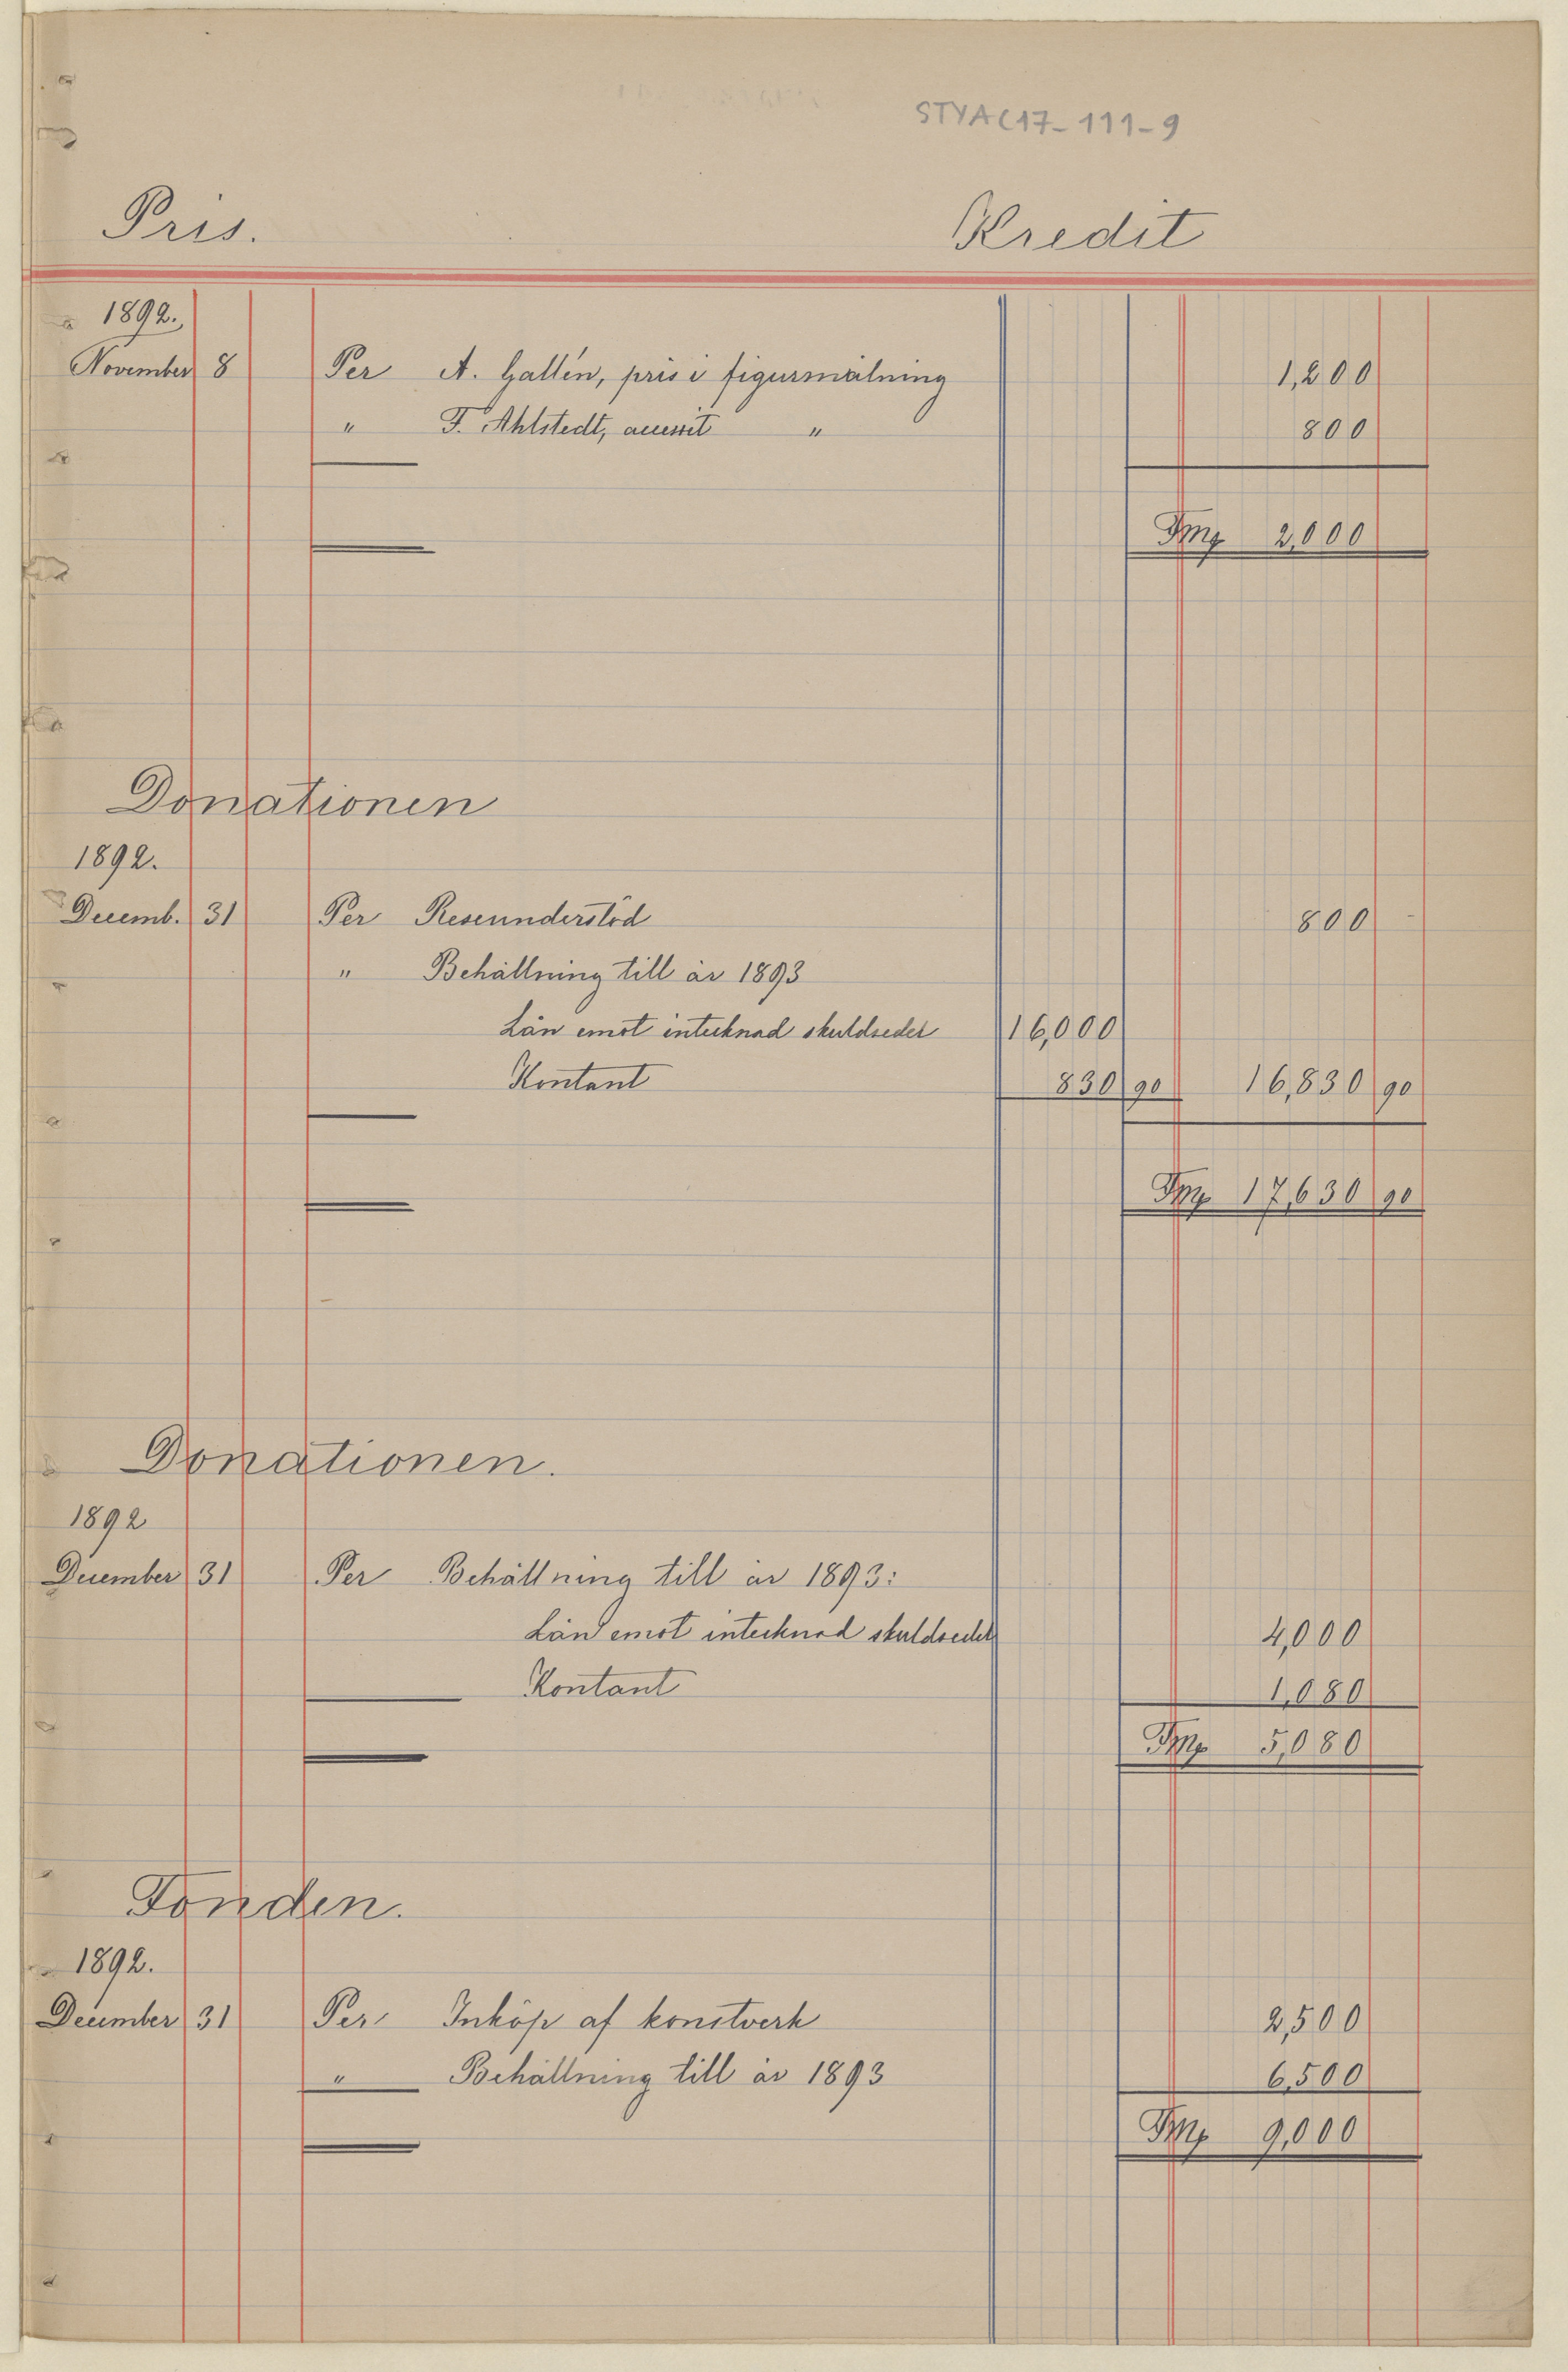 STYA C17-111-9
Pris. Kredit
1892.
November 8 Per A. Gallén, pris i figurmålning 1,200
" F. Ahlstedt, accessit " 800
Fmg 2,000
Donationen
1892.
Decemb. 31 Per Reseunderstöd 800
" Behållning till år 1893
Lån emot intecknad skuldsedel 16,000
Kontant 830 90 16,830 90
Fmg 17,630 90
Donationen.
1892
December 31 Per Behållning till år 1893:
Lån emot intecknad skuldsedel 4,000
Kontant 1,080
Fmg 5,080
Fonden.
1892.
December 31 Per Inköp af konstverk 2,500
" Behållning till år 1893 6,500
Fmg 9,000